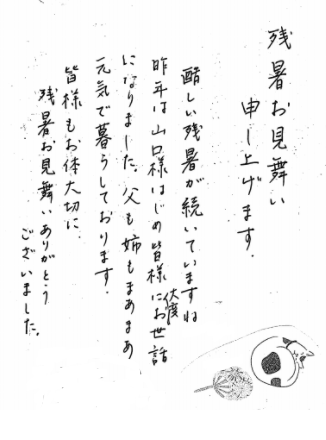 残暑お見舞い
申し上げます.
酷しい残暑が続いていますね
昨年は山口様はじめ皆様にお世話
になりました。父も姉もまあまあ
元気で暮らしております.
皆様もお体大切に.
残暑お見舞いありがとう
ございました。